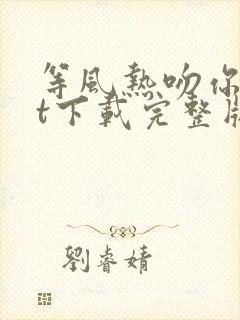 等風熱吻你
t下載完整
劉睿婧